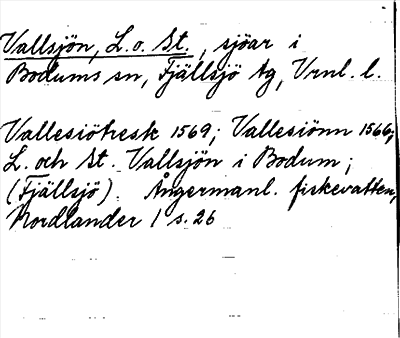 Vallsjön, L. o. St., sjöar i
Bodums sn, Fjällsjö tg, Vrnl. l.
Vallesiötresk 1569; Vallesiönn 1566;
L. och St. Vallsjön i Bodum;
(Fjällsjö). Ångermanl. fiskevatten,
Nordlander 1 s. 26